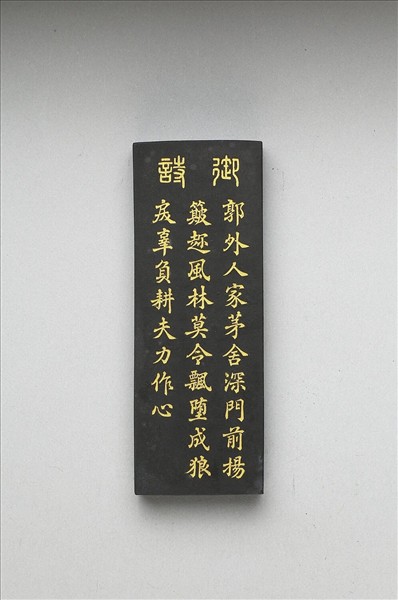 御詩
郭外人家茅舍深門前揚
簸趂風林莫令飄堕成狼
戾辜負耕夫力作心